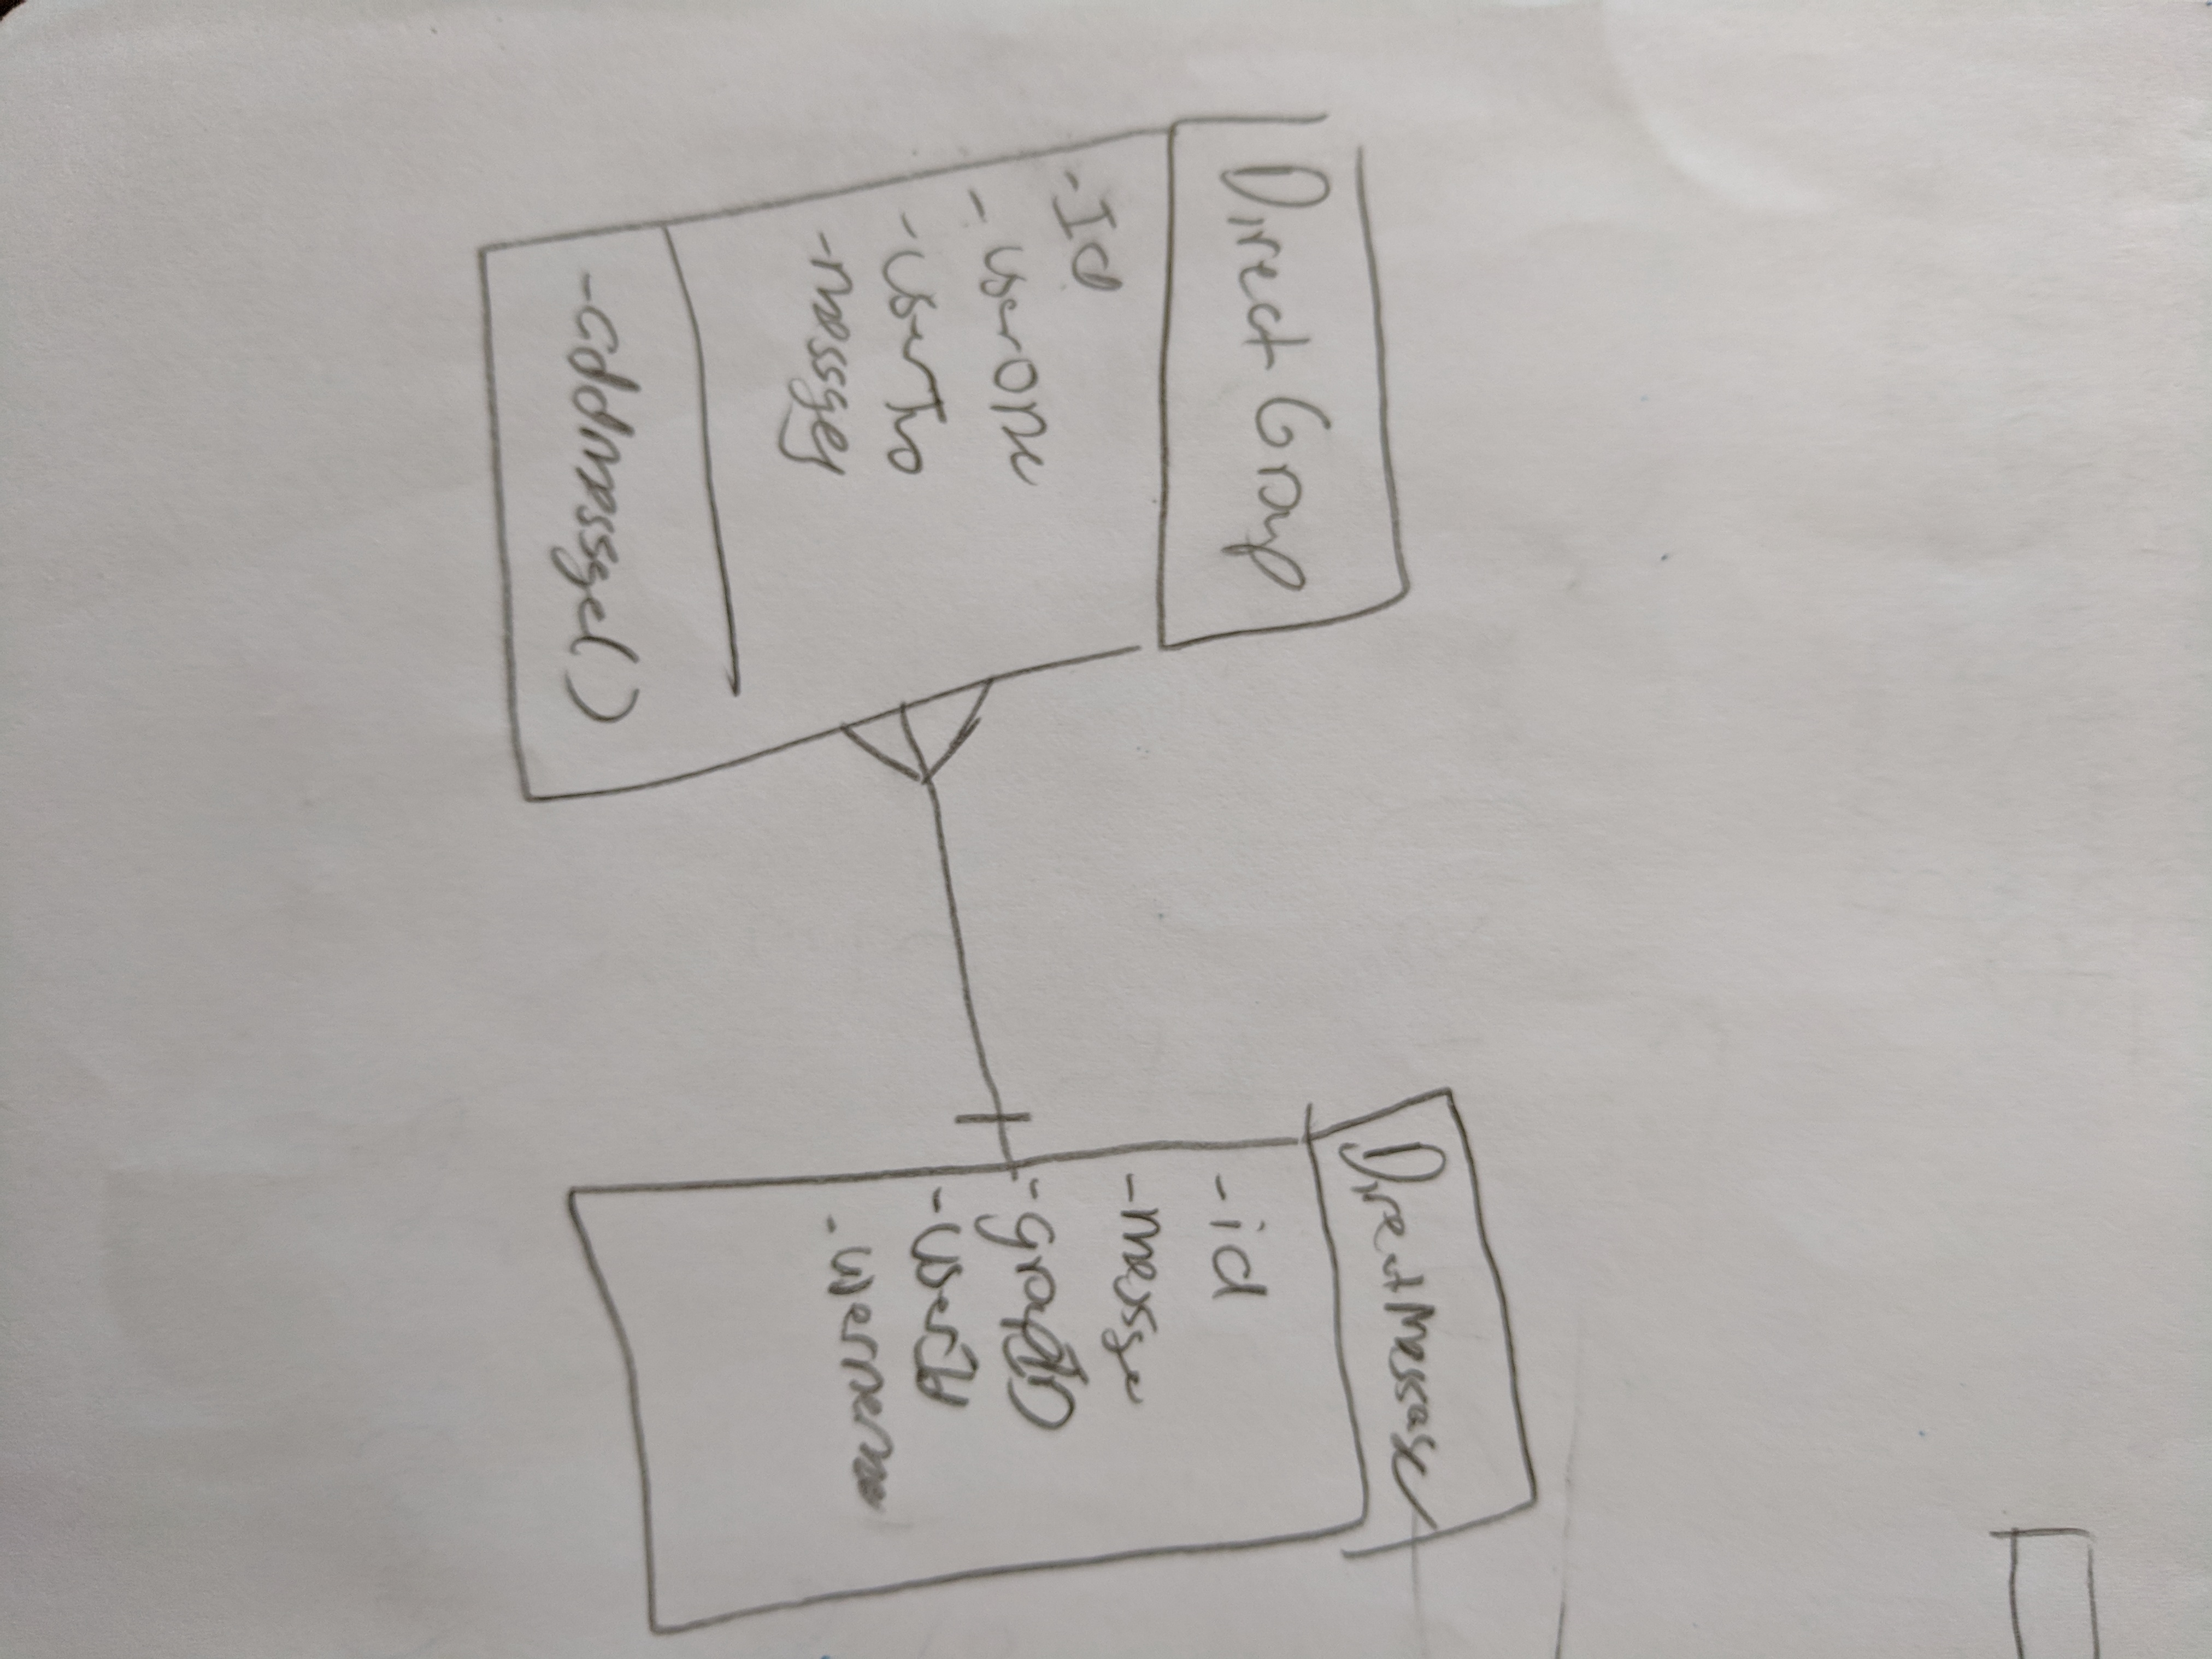 Direct Group
- Id
- userOne
- userTwo
- messages
- addmessage()
DirectMessage
- id
- message
- groupID
- userId
- username